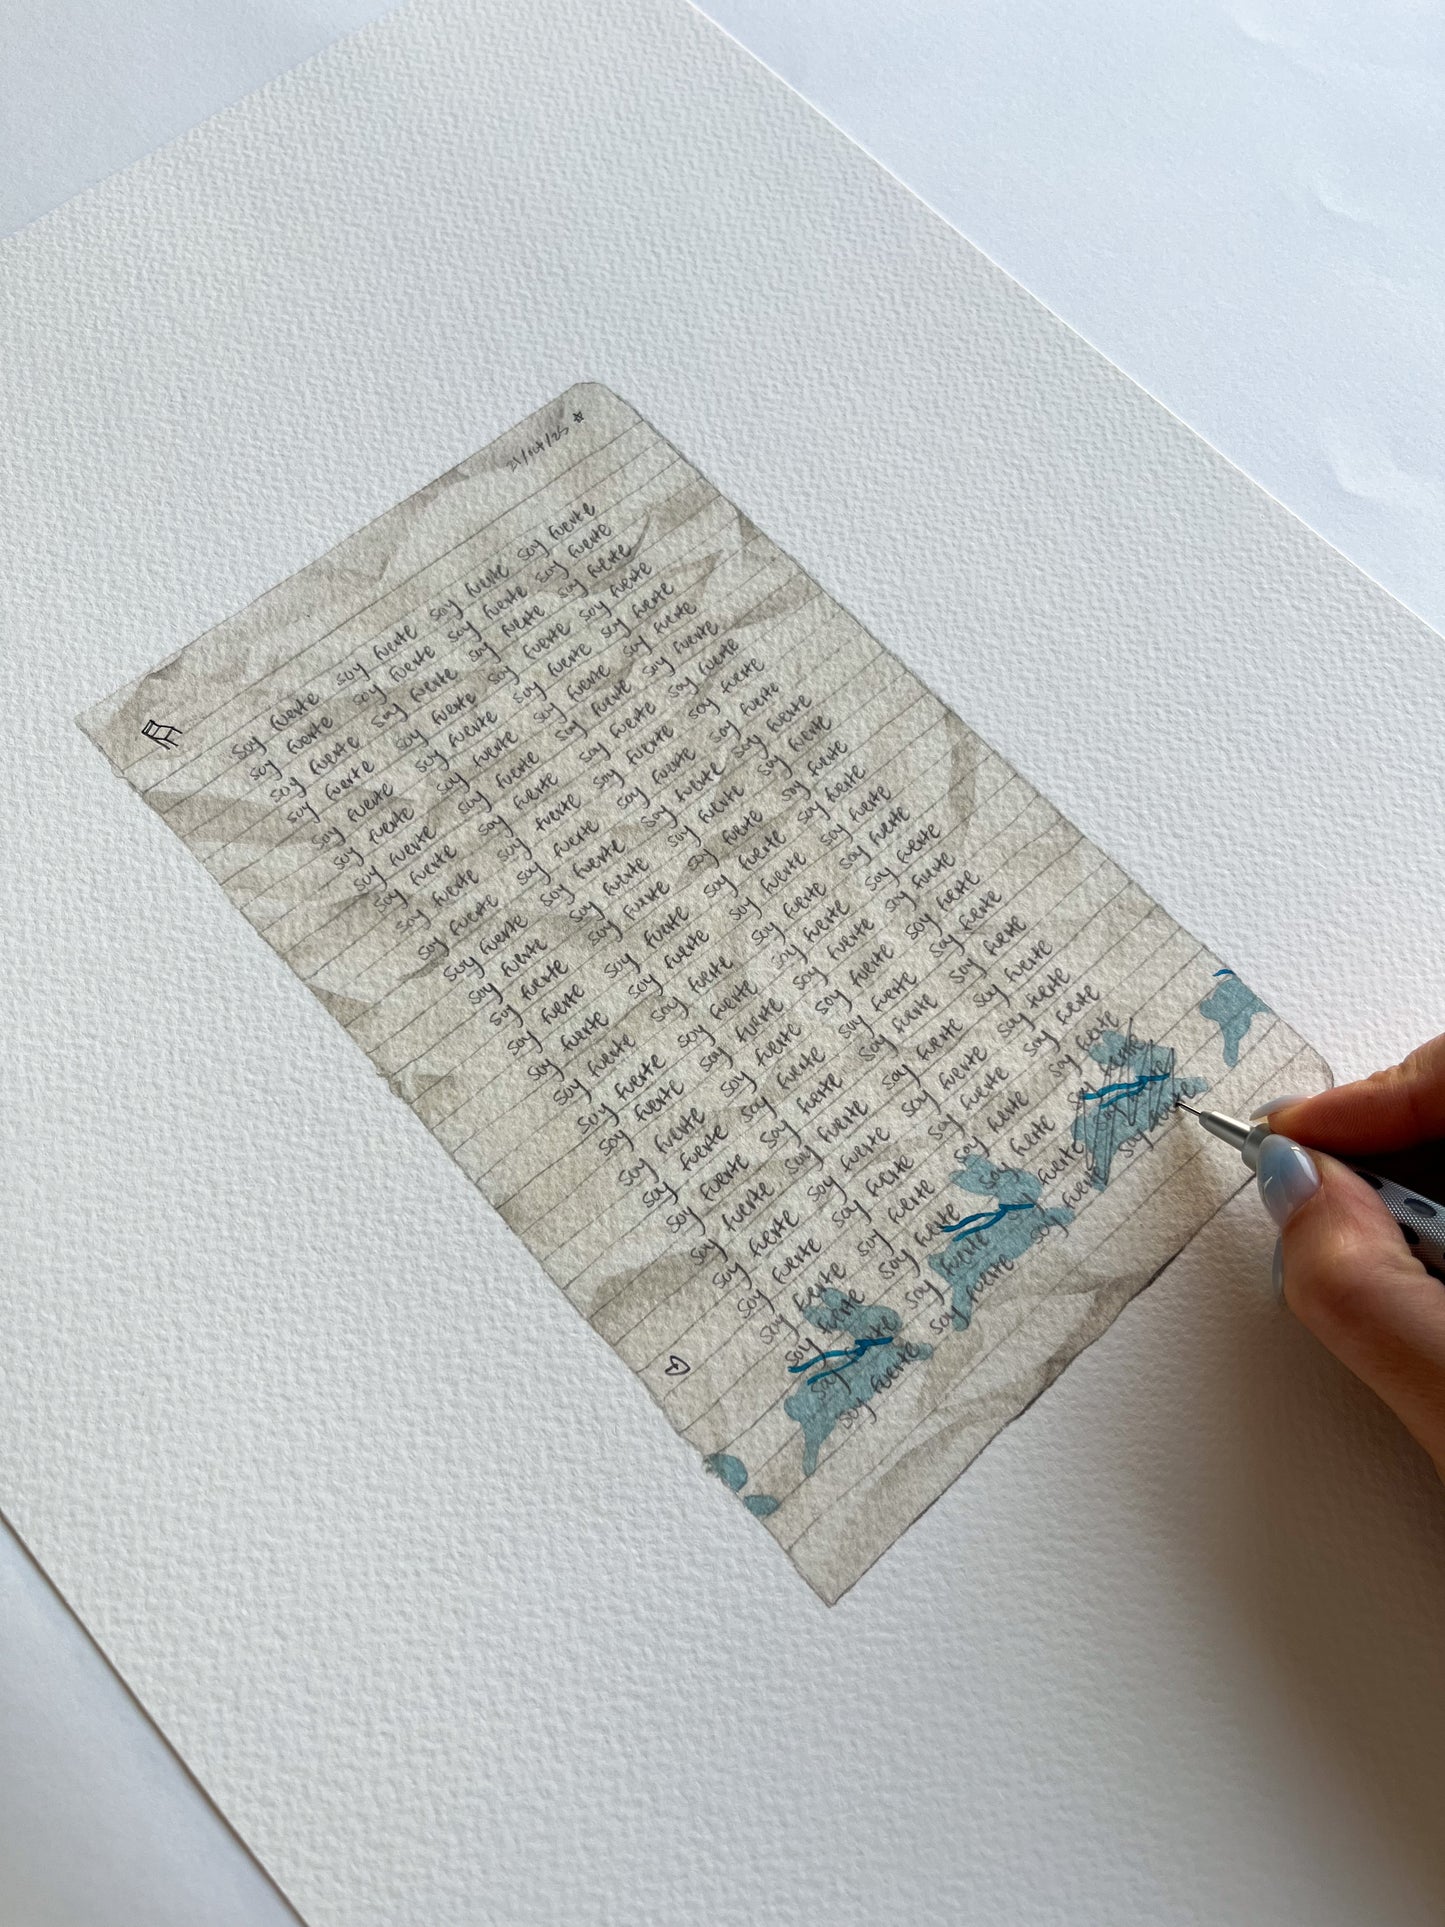 21/oct/25
soy fuerte soy fuerte soy fuerte soy fuerte
soy fuerte soy fuerte soy fuerte soy fuerte
soy fuerte soy fuerte soy fuerte soy fuerte
soy fuerte soy fuerte soy fuerte soy fuerte
soy fuerte soy fuerte soy fuerte soy fuerte
soy fuerte soy fuerte soy fuerte soy fuerte
soy fuerte soy fuerte soy fuerte soy fuerte
soy fuerte soy fuerte soy fuerte soy fuerte
soy fuerte soy fuerte soy fuerte soy fuerte
soy fuerte soy fuerte soy fuerte soy fuerte
soy fuerte soy fuerte soy fuerte soy fuerte
soy fuerte soy fuerte soy fuerte soy fuerte
soy fuerte soy fuerte soy fuerte soy fuerte
soy fuerte soy fuerte soy fuerte soy fuerte
soy fuerte soy fuerte soy fuerte soy fuerte
soy fuerte soy fuerte soy fuerte soy fuerte
soy fuerte soy fuerte soy fuerte soy fuerte
soy fuerte soy fuerte soy fuerte soy fuerte
soy fuerte soy fuerte soy fuerte soy fuerte
soy fuerte soy fuerte soy fuerte soy fuerte
soy fuerte soy fuerte soy fuerte soy fuerte
soy fuerte soy fuerte soy fuerte soy fuerte
soy fuerte soy fuerte soy fuerte soy fuerte
soy fuerte soy fuerte soy fuerte soy fuerte
soy fuerte soy fuerte soy fuerte soy fuerte
soy fuerte soy fuerte soy fuerte soy fuerte
soy fuerte soy fuerte soy fuerte soy fuerte
soy fuerte soy fuerte soy fuerte soy fuerte